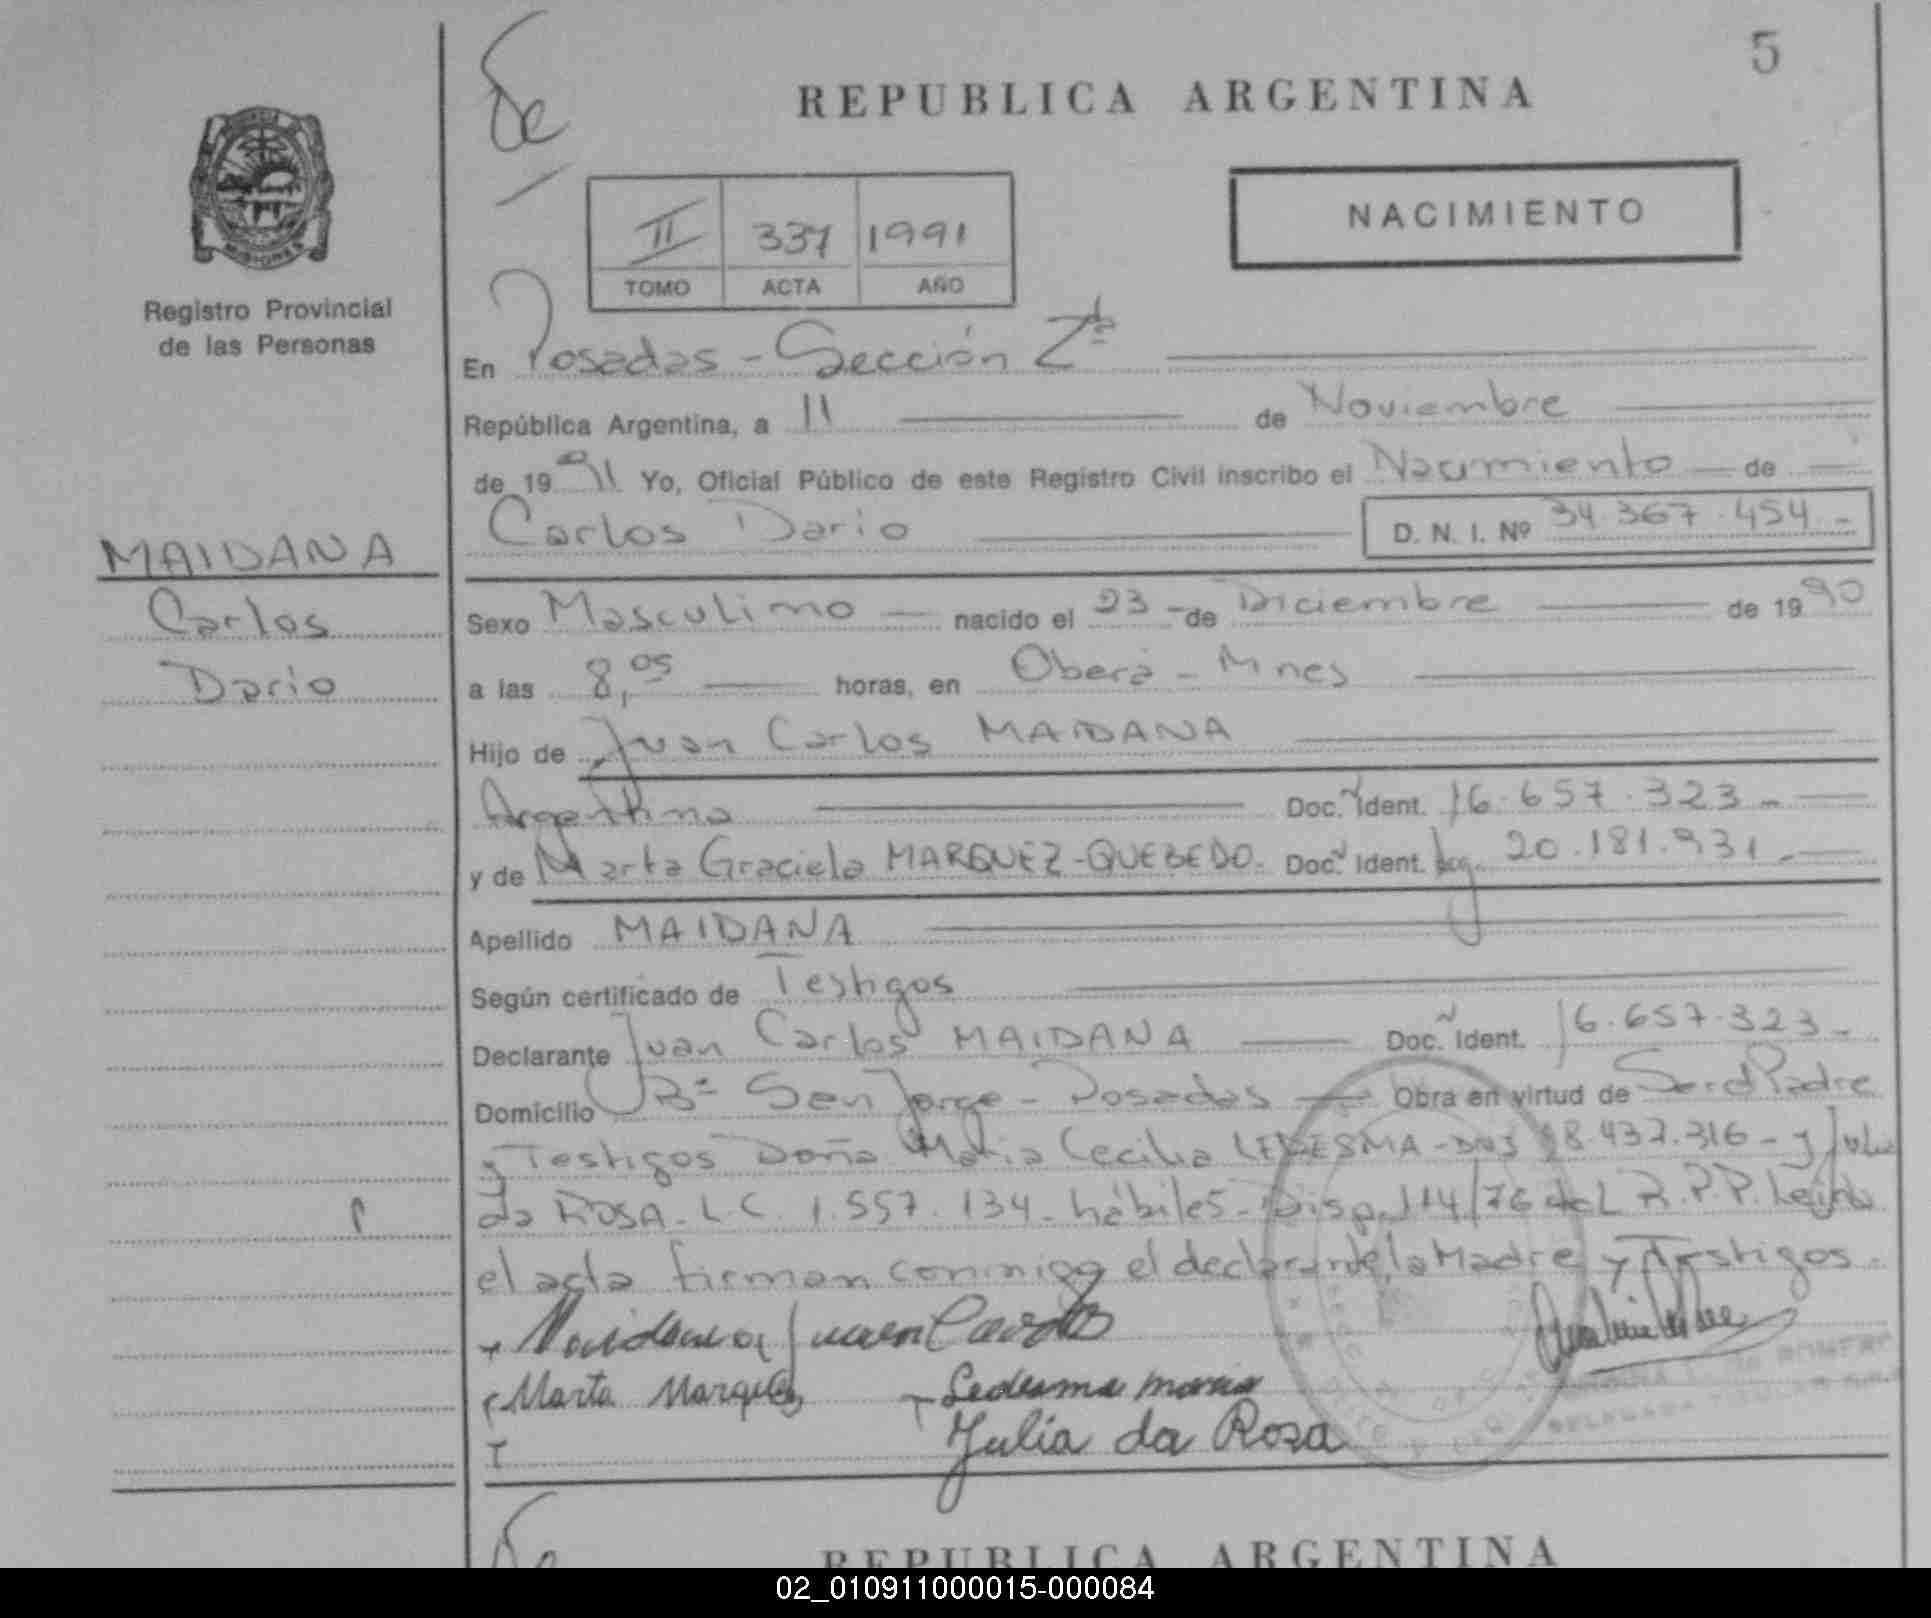 5
REPUBLICA ARGENTINA
NACIMIENTO
II 337 1991
TOMO ACTA AÑO
MISIONES
Registro Provincial
de las Personas
En Posadas - Sección 2da
República Argentina, a 11 de Noviembre
de 1991 Yo, Oficial Público de este Registro Civil inscribo el Nacimiento de
Carlos Dario D. N. I. Nº 34.367.454.-
MAIDANA
Carlos
Dario
Sexo Masculino nacido el 23 - de Diciembre de 1990
a las 8,05 horas, en Oberá - Mnes
Hijo de Juan Carlos MAIDANA
Argentino Doc. Ident. 16.657.323.-
y de Marta Graciela MARQUEZ-QUEBEDO. Doc. Ident. Arg. 20.181.931.-
Apellido MAIDANA
Según certificado de Testigos
Declarante Juan Carlos MAIDANA Doc. Ident. 16.657.323.-
Domicilio Bº San Jorge - Posadas Obra en virtud de Ser el Padre
y Testigos Doña Maria Cecilia LEDESMA - DNI 18.437.316 - y Julia
da ROSA - L.C. 1.557.134 - hábiles - Disp. 114/76 del R.P.P. Leida
el acta firman conmigo el declarante, la Madre y Testigos.
Maidana Juan Carlos
Marta Marquez Ledesma maria
Julia da Rosa
REPUBLICA ARGENTINA
02_010911000015-000084